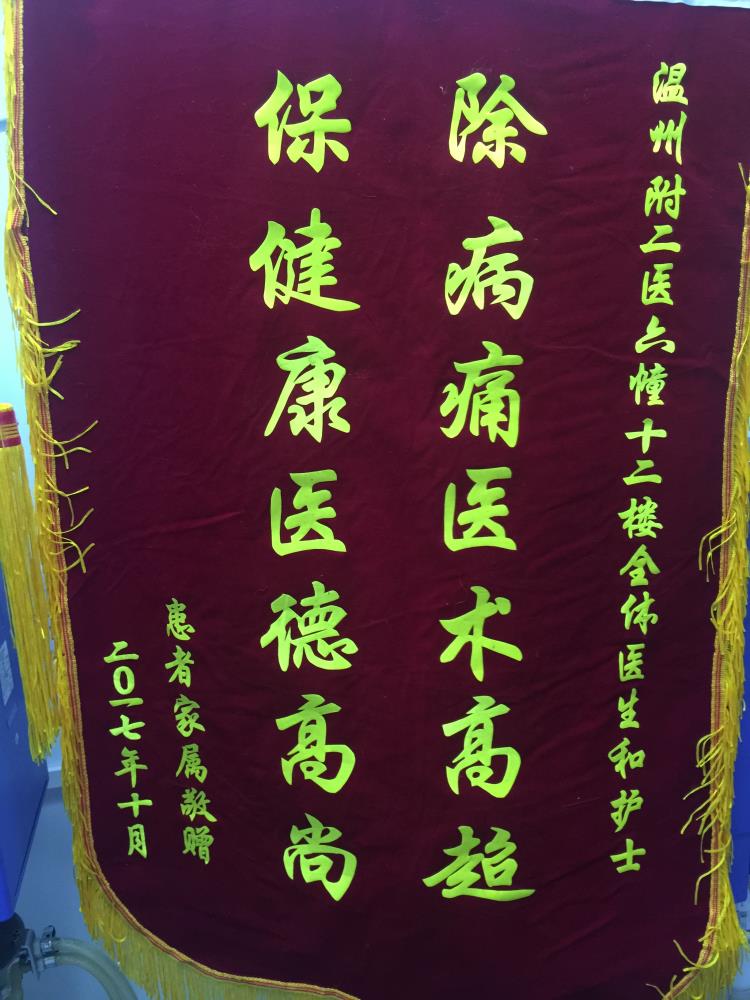 温州附二医六幢十二楼全体医生和护士
除病痛医术高超
保健康医德高尚
患者家属敬赠
二〇一七年十月